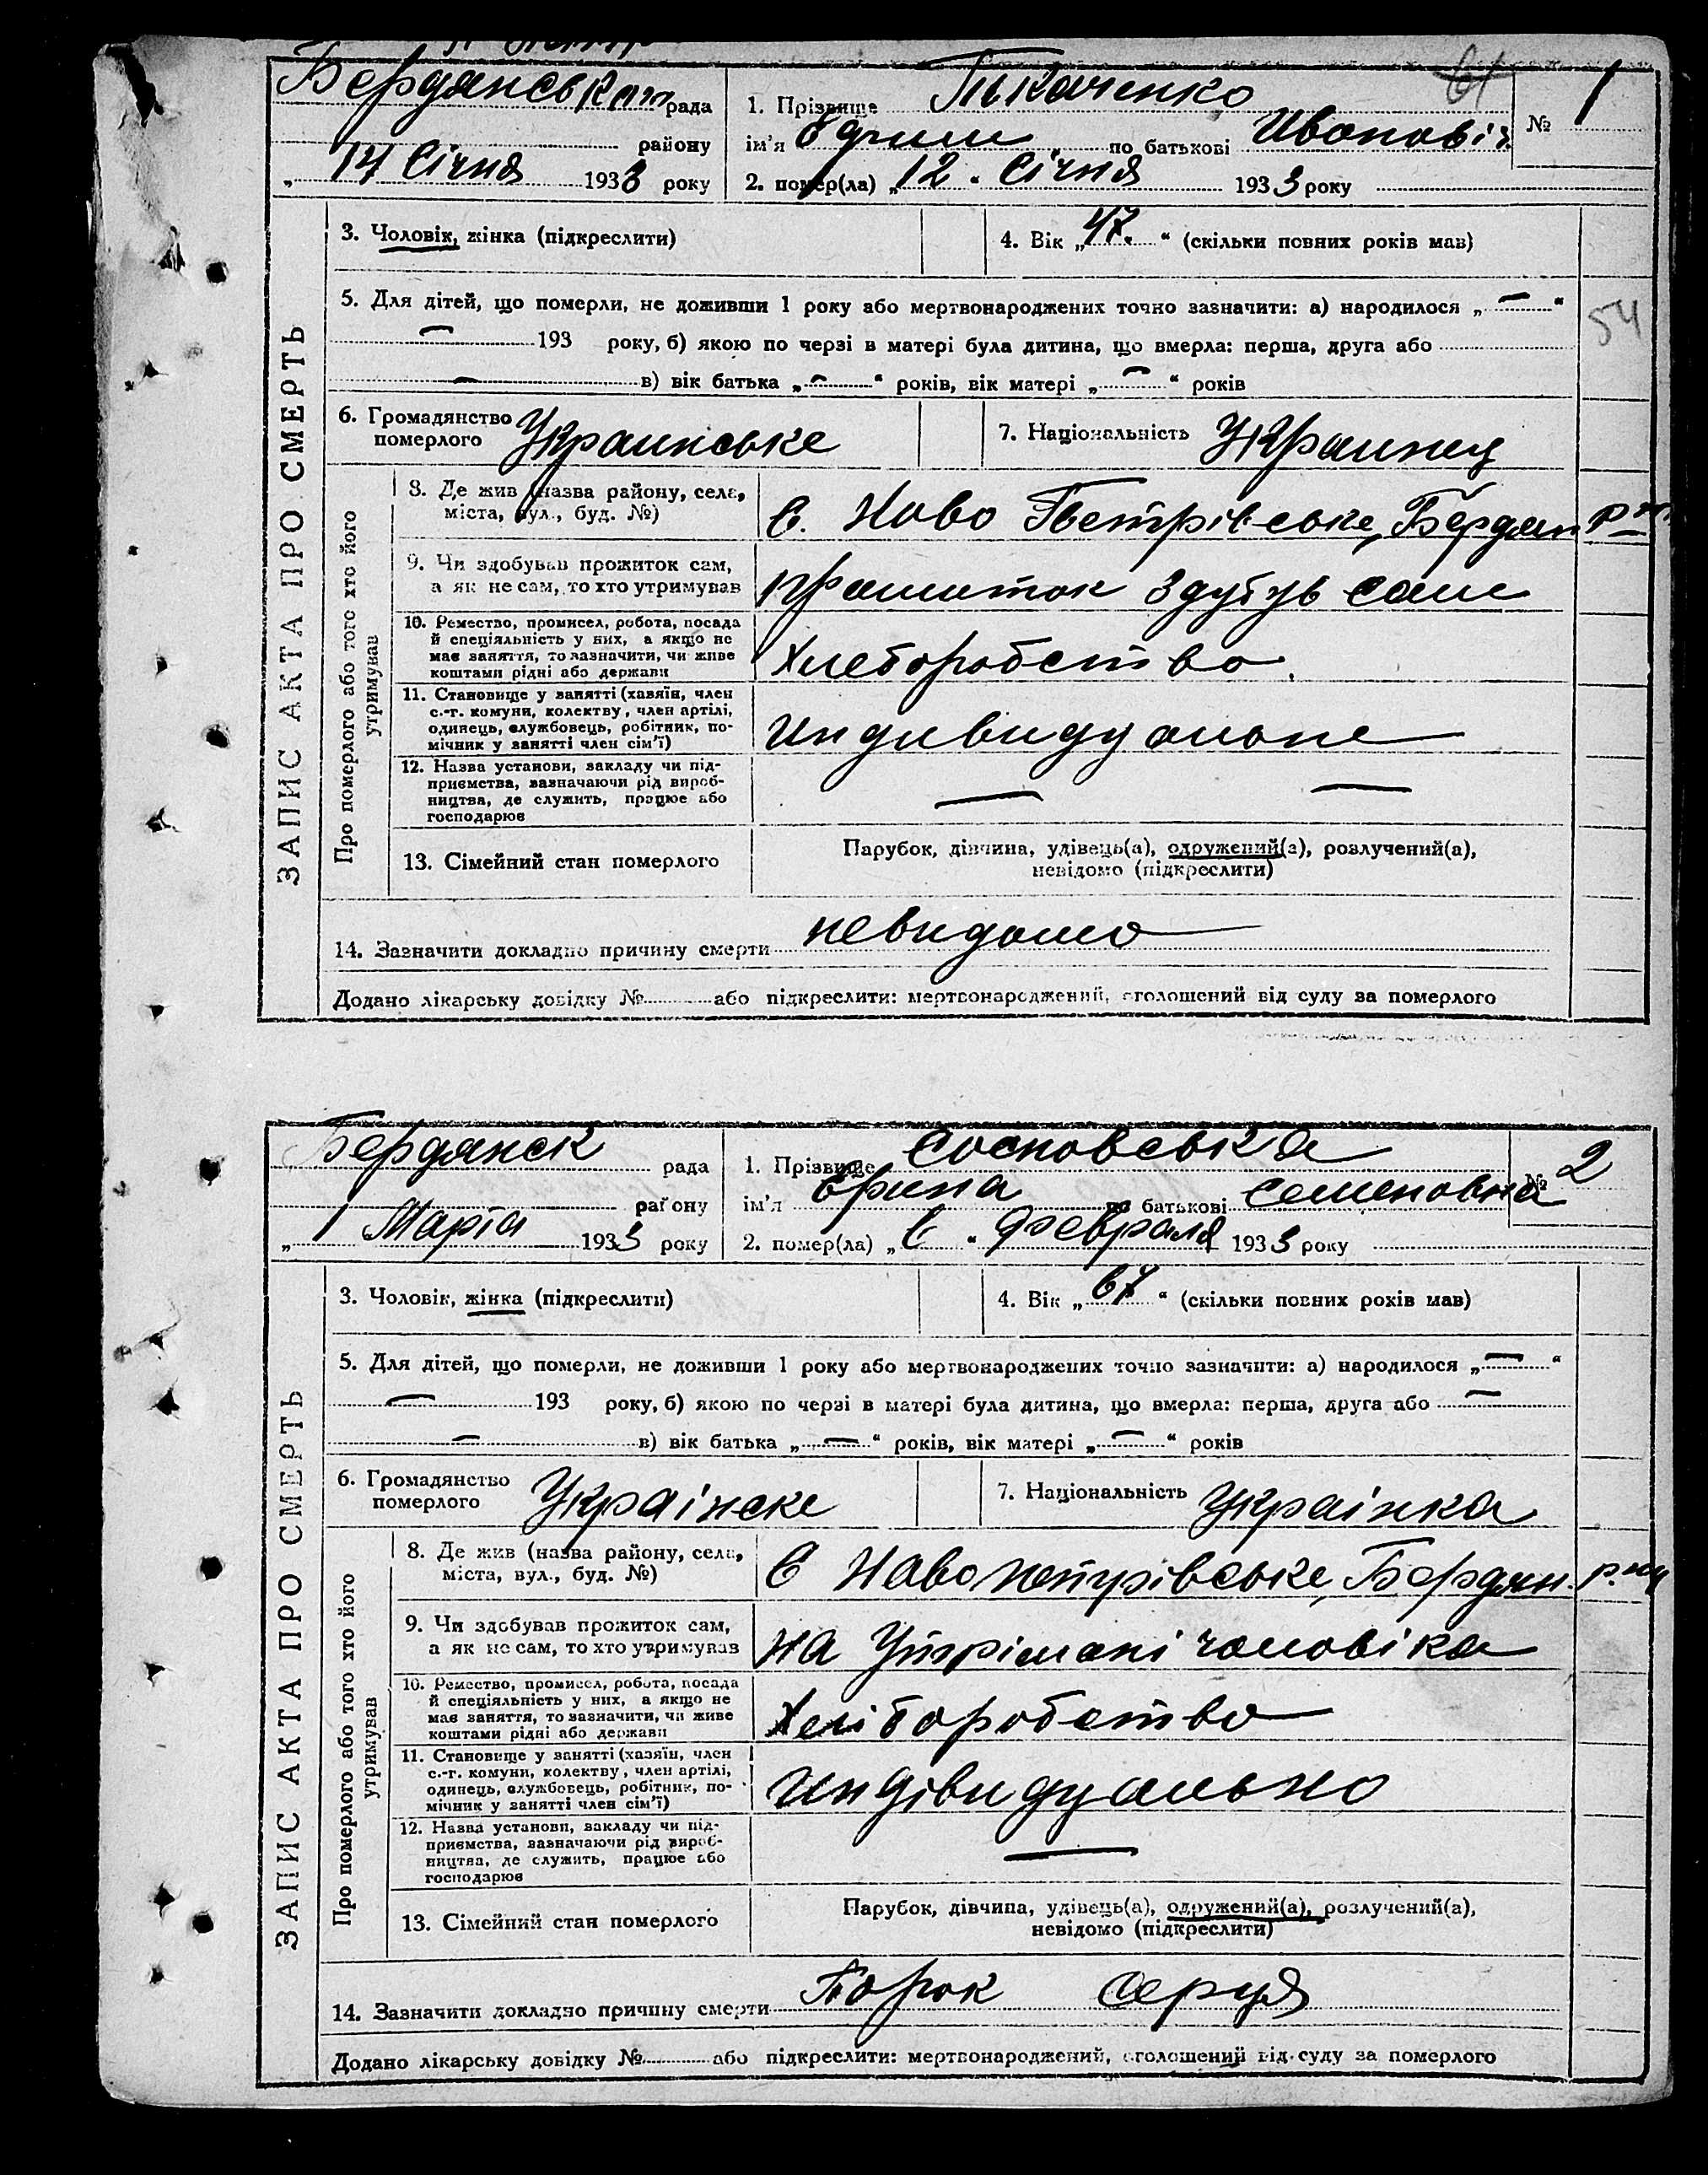 Бердянська рада
1. Прізвище Ткаченко
№ 1
району
ім'я Єфим по батькові Ивановіч
„ 14 Січня 1933 року
2. помер(ла) „12“ Січня 1933 року
ЗАПИС АКТА ПРО СМЕРТЬ
3. Чоловік, жінка (підкреслити)
4. Вік „47.“ (скільки повних років мав)
5. Для дітей, що померли, не доживши 1 року або мертвонароджених точно зазначити: а) народилося „—“
— 193 року, б) якою по черзі в матері була дитина, що вмерла: перша, друга або
— в) вік батька „—“ років, вік матері „—“ років
54
6. Громадянство померлого Украинське
7. Національність Украинец
Про померлого або того хто його утримував
8. Де жив (назва району, села, міста, вул., буд. №)
С. Ново Петрівське, Бердян р-н
9. Чи здобував прожиток сам, а як не сам, то хто утримував
сам
10. Ремество, промисел, робота, посада й спеціяльність у них, а якщо не має заняття, то зазначити, чи живе коштами рідні або держави
Хлеборобство.
11. Становище у занятті (хазяїн, член с.-г. комуни, колективу, член артілі, одинець, службовець, робітник, помічник у занятті член сім'ї)
12. Назва установи, закладу чи підприємства, зазначаючи рід виробництва, де служить, працює або господарює
— —
13. Сімейний стан померлого
Парубок, дівчина, удівець(а), одружений(а), розлучений(а), невідомо (підкреслити)
14. Зазначити докладно причину смерти невидомо
Додано лікарську довідку № або підкреслити: мертвонароджений, оголошений від суду за померлого
Бердянск рада
1. Прізвище Сосновська
№ 2
району
ім'я Єрина по батькові Семеновна
„ 1 Марта 1933 року
2. помер(ла) „6“ Февраля 1933 року
ЗАПИС АКТА ПРО СМЕРТЬ
3. Чоловік, жінка (підкреслити)
4. Вік „67“ (скільки повних років мав)
5. Для дітей, що померли, не доживши 1 року або мертвонароджених точно зазначити: а) народилося „—“
— 193 року, б) якою по черзі в матері була дитина, що вмерла: перша, друга або —
— в) вік батька „—“ років, вік матері „—“ років
6. Громадянство померлого Українске
7. Національність Українка
Про померлого або того хто його утримував
8. Де жив (назва району, села, міста, вул., буд. №)
С Новопетрівське, Бердян. р-ну
9. Чи здобував прожиток сам, а як не сам, то хто утримував
на Утрімані чоловіка
10. Ремество, промисел, робота, посада й спеціяльність у них, а якщо не має заняття, то зазначити, чи живе коштами рідні або держави
Хліборобство
11. Становище у занятті (хазяїн, член с.-г. комуни, колективу, член артілі, одинець, службовець, робітник, помічник у занятті член сім'ї)
Индівидуально
12. Назва установи, закладу чи підприємства, зазначаючи рід виробництва, де служить, працює або господарює
—
13. Сімейний стан померлого
Парубок, дівчина, удівець(а), одружений(а), розлучений(а), невідомо (підкреслити)
14. Зазначити докладно причину смерти Порок серця
Додано лікарську довідку № або підкреслити: мертвонароджений, оголошений від суду за померлого